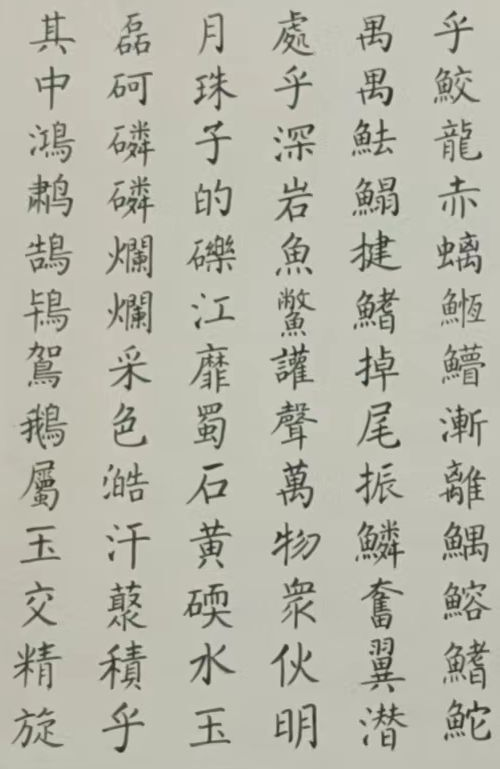 乎鮫龍赤螭䱭䲛漸離鰅鰫鰭鮀
禺禺魼鰨揵鰭掉尾振鱗奮翼潜
處乎深岩魚鱉讙聲萬物衆伙明
月珠子的礫江靡蜀石黄碝水玉
磊砢磷磷爛爛采色澔汗藂積乎
其中鴻鷫鵠鴇鴐鵝屬玉交精旋